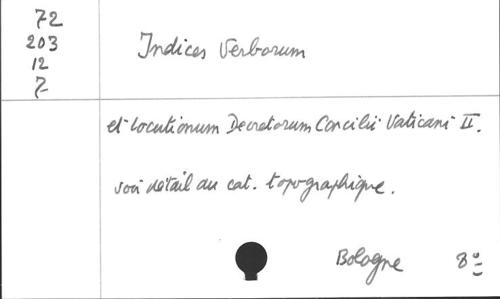 72
203
12
7
Indices Verborum
et Locutionum Decretorum Concilii Vaticani II.
voir détail au cat. topographique.
Bologne 8º